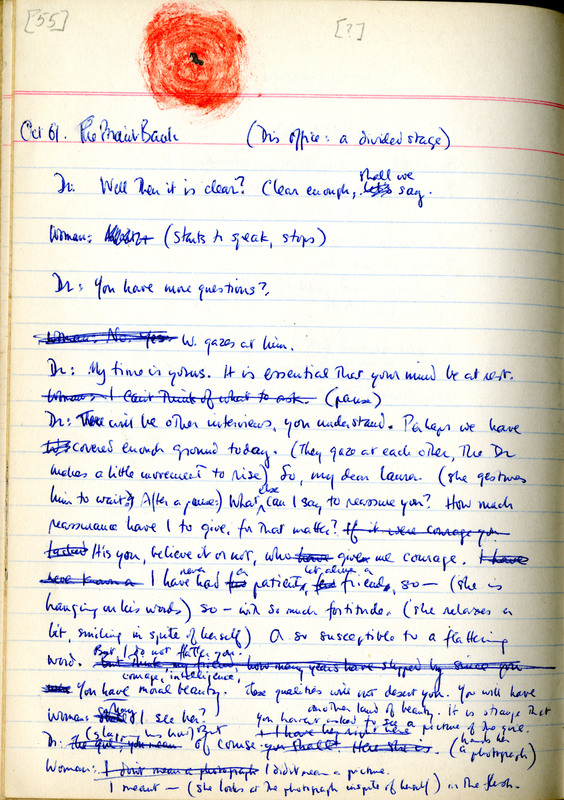 [55] [?]
Oct 61. The Brain Bank (Drs office: a divided stage)
Dr: Well then it is clear? Clear enough, let's shall we say.
Woman: (starts to speak, stops)
Dr: You have more questions?
Woman: No. Yes. W. gazes at him.
Dr: My time is yours. It is essential that your mind be at rest.
Woman: I can't think of what to ask. (pause)
Dr: There will be other interviews, you understand. Perhaps we have
covered enough ground today. (They gaze at each other, the Dr
makes a little movement to rise) So, my dear Laura. (she gestures
him to wait) After a pause) What else can I say to reassure you? How much
reassurance have I to give, for that matter? If it were courage you
lacked It is you, believe it or not, who have given me courage. I have
never known a I have never had a patient, let alone a friend, so — (she is
hanging on his words) so — with so much fortitude. (she relaxes a
bit, smiling in spite of herself) Or so susceptible to a flattering
word. But I do not flatter you. But think, my friend, how many years have slipped by since you
You have courage, intelligence, moral beauty. These qualities will not desert you. You will have
another kind of beauty. It is strange that
you haven't asked to see a picture of the girl.
Woman: may I see her?
Dr: The girl, you mean (slaps his brow) But of course you shall! Here she is. I have her right here (hands her a photograph)
Woman: I don't mean a photograph I didn't mean a picture.
I meant — (she looks at the photograph in spite of herself) in the flesh.